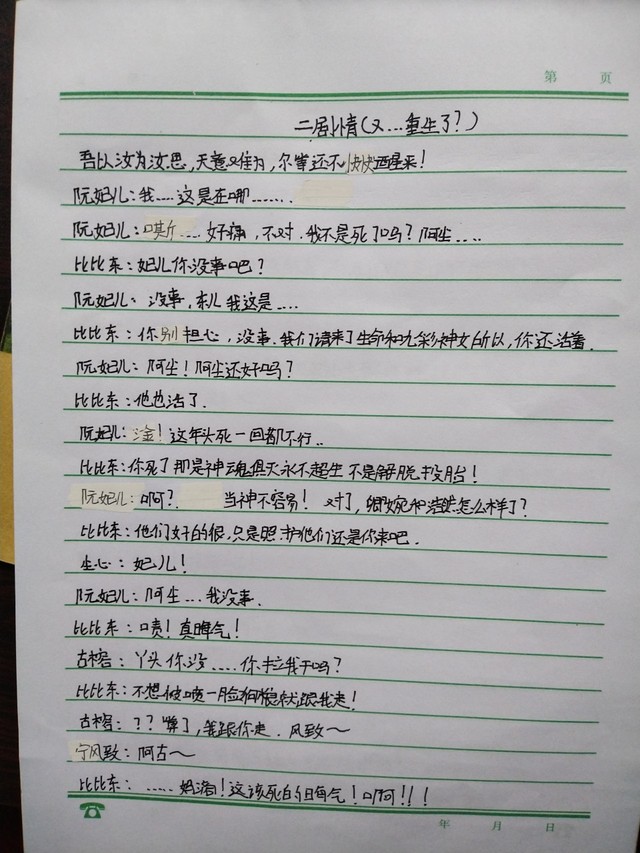 第 页
二剧情(又...重生了?)
吾以汝为汝思,天意难为,尔等还不快快酒星来!
阮妃儿:我....这是在哪.......
阮妃儿:嘶.... 好痛,不对.我不是死了吗?阿尘....
比比东:妃儿你没事吧?
阮妃儿:没事.东儿我这是....
比比东:你别担心,没事.我们请来了生命和九彩神女所以,你还活着.
阮妃儿:阿尘!阿尘还好吗?
比比东:他也活了.
阮妃儿:淦!这年头死一回都不行..
比比东:你死了那是神魂俱灭永不超生不是解脱投胎!
阮妃儿:啊? 当神不容易!对了,卿婉和浩然怎么样了?
比比东:他们好的很,只是照护他们还是你来吧.
尘心:妃儿!
阮妃儿:阿尘...我没事.
比比东:啧!真晦气!
古榕:丫头你没....你拉我干吗?
比比东:不想被喷一脸狗粮就跟我走!
古榕:??算了,我跟你走.风致~
宁风致:阿古~
比比东:.....妈滴!这该死的晦气!啊!!!
年 月 日